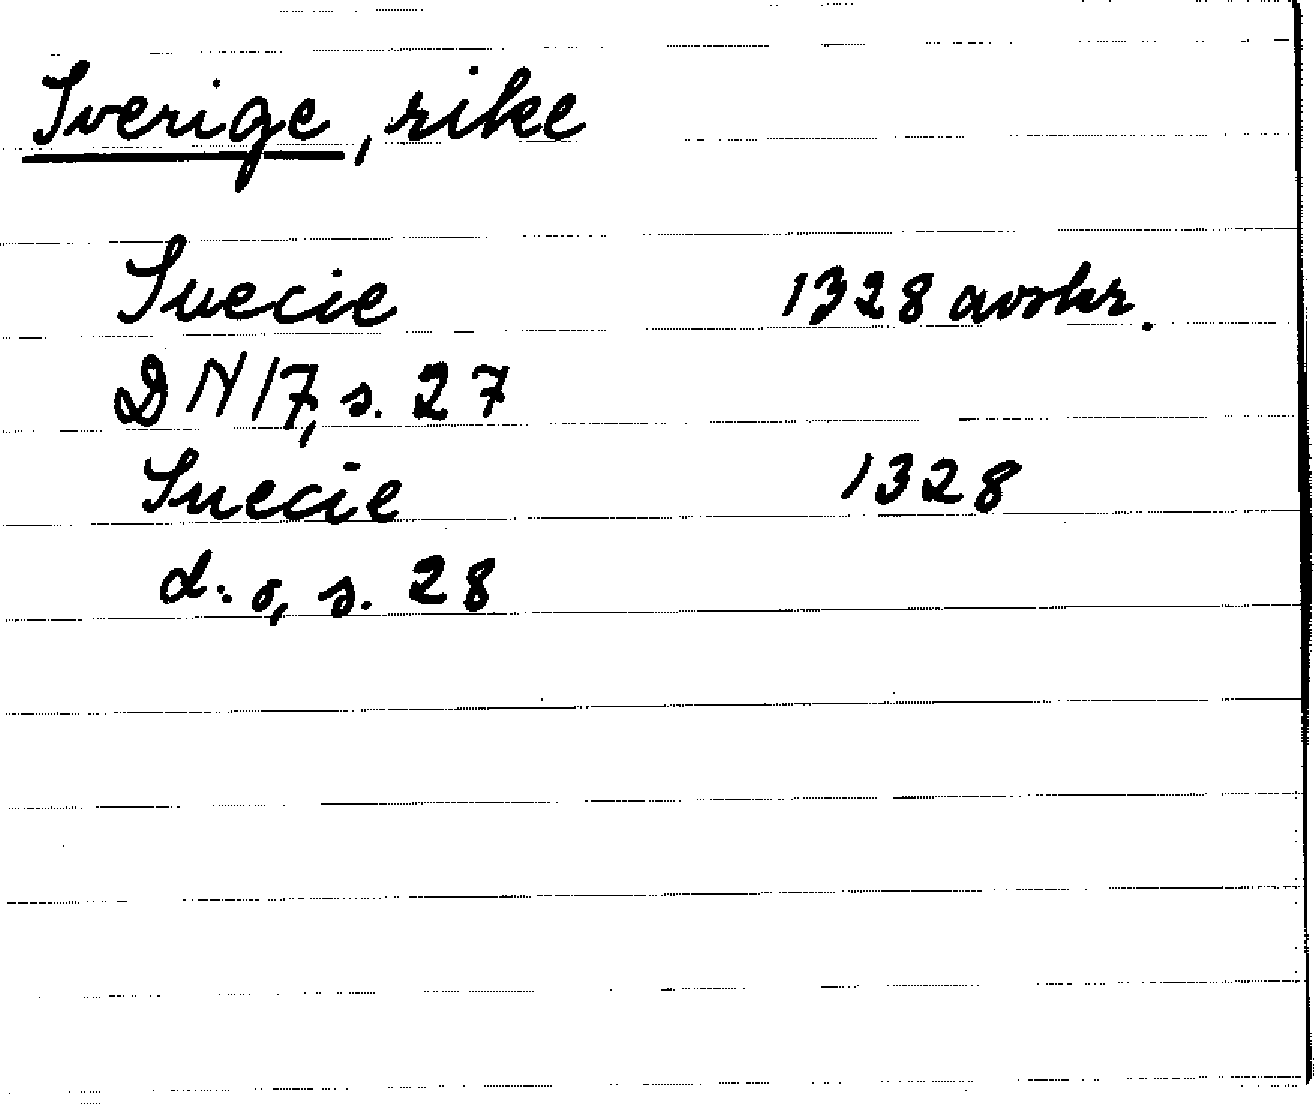 Sverige, rike
Suecie 1328 avskr.
DN 17, s. 27
Suecie 1328
d:o, s. 28